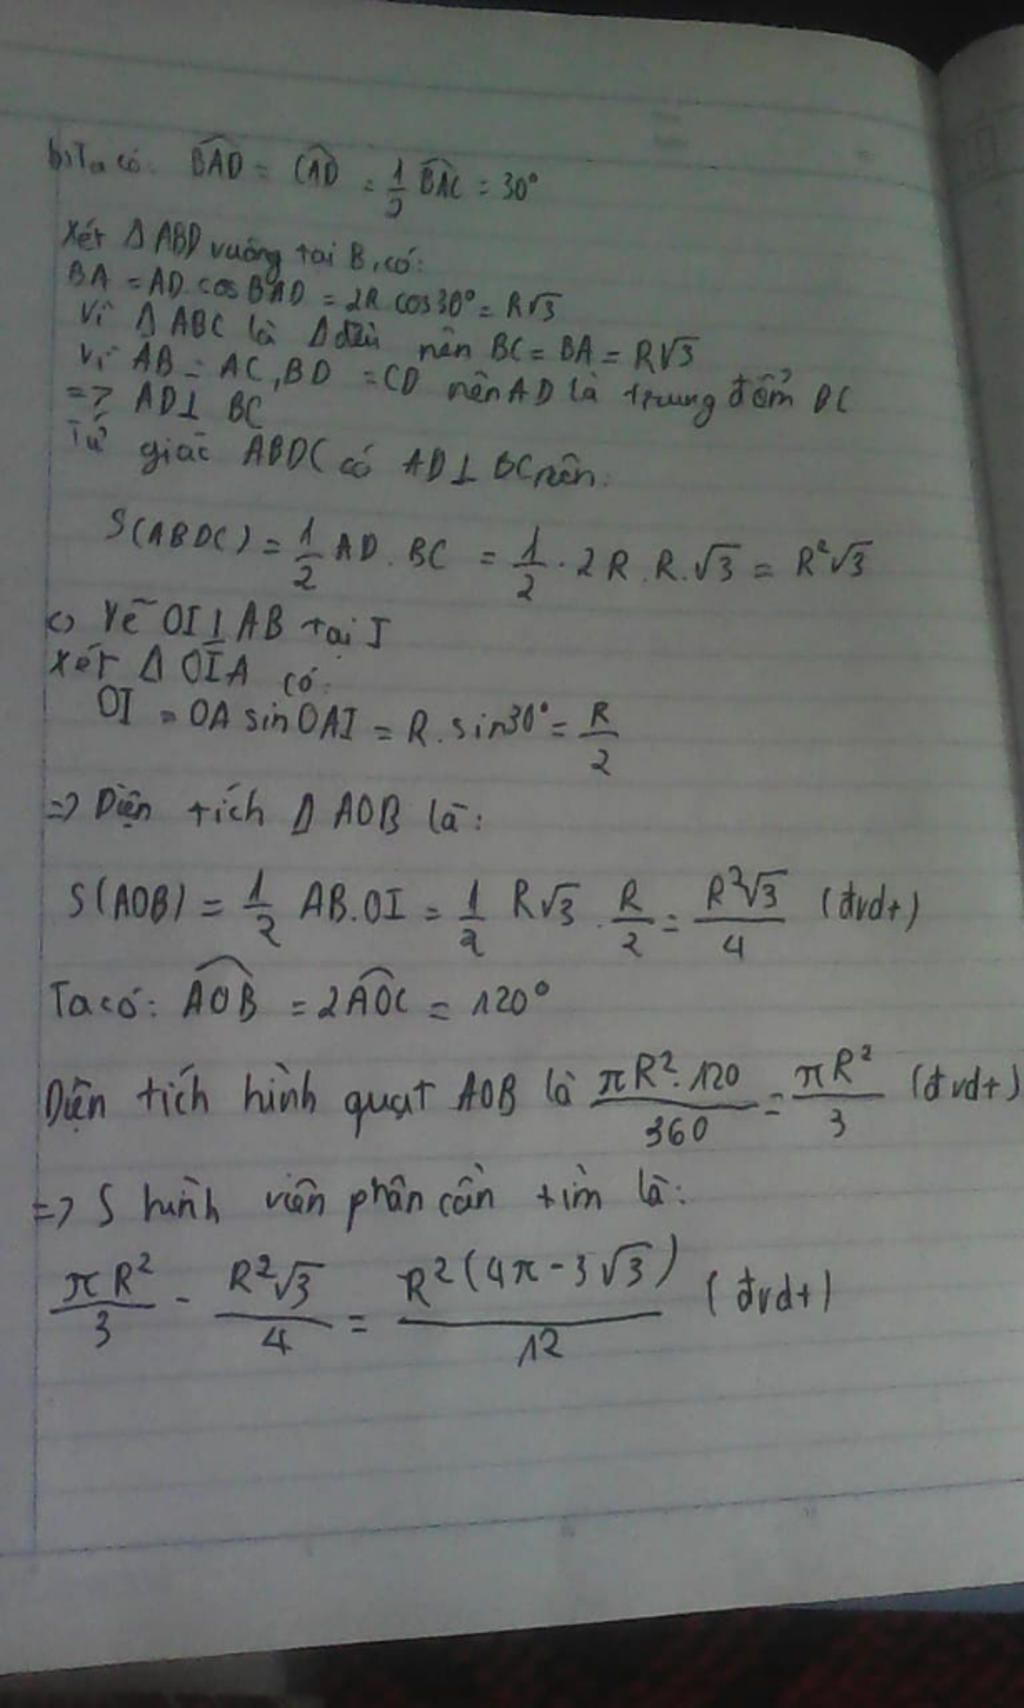 b) Ta có: BAD = CAD = 1/2 BAC = 30°
Xét Δ ABD vuông tại B, có:
BA = AD. cos BAD = 2R cos30° = R√3
Vì Δ ABC là Δ đều nên BC = BA = R√3
Vì AB = AC, BD = CD nên AD là trung đểm BC
=> AD⊥ BC
Tứ giác ABDC có AD⊥ BC nên:
S(ABDC) = 1/2 AD. BC = 1/2 . 2R . R.√3 = R²√3
c) Vẽ OI⊥AB tại I
Xét Δ OIA có:
OI = OA sin OAI = R. sin30° = R/2
=> Diện tích Δ AOB là:
S(AOB) = 1/2 AB.OI = 1/2 R√3 . R/2 = R²√3/4 (đvdt)
Ta có: AOB = 2AOC = 120°
Diện tích hình quạt AOB là πR².120/360 = πR²/3 (đvdt)
=> S hình viên phân cần tìm là:
πR²/3 - R²√3/4 = R²(4π-3√3)/12 (đvdt)